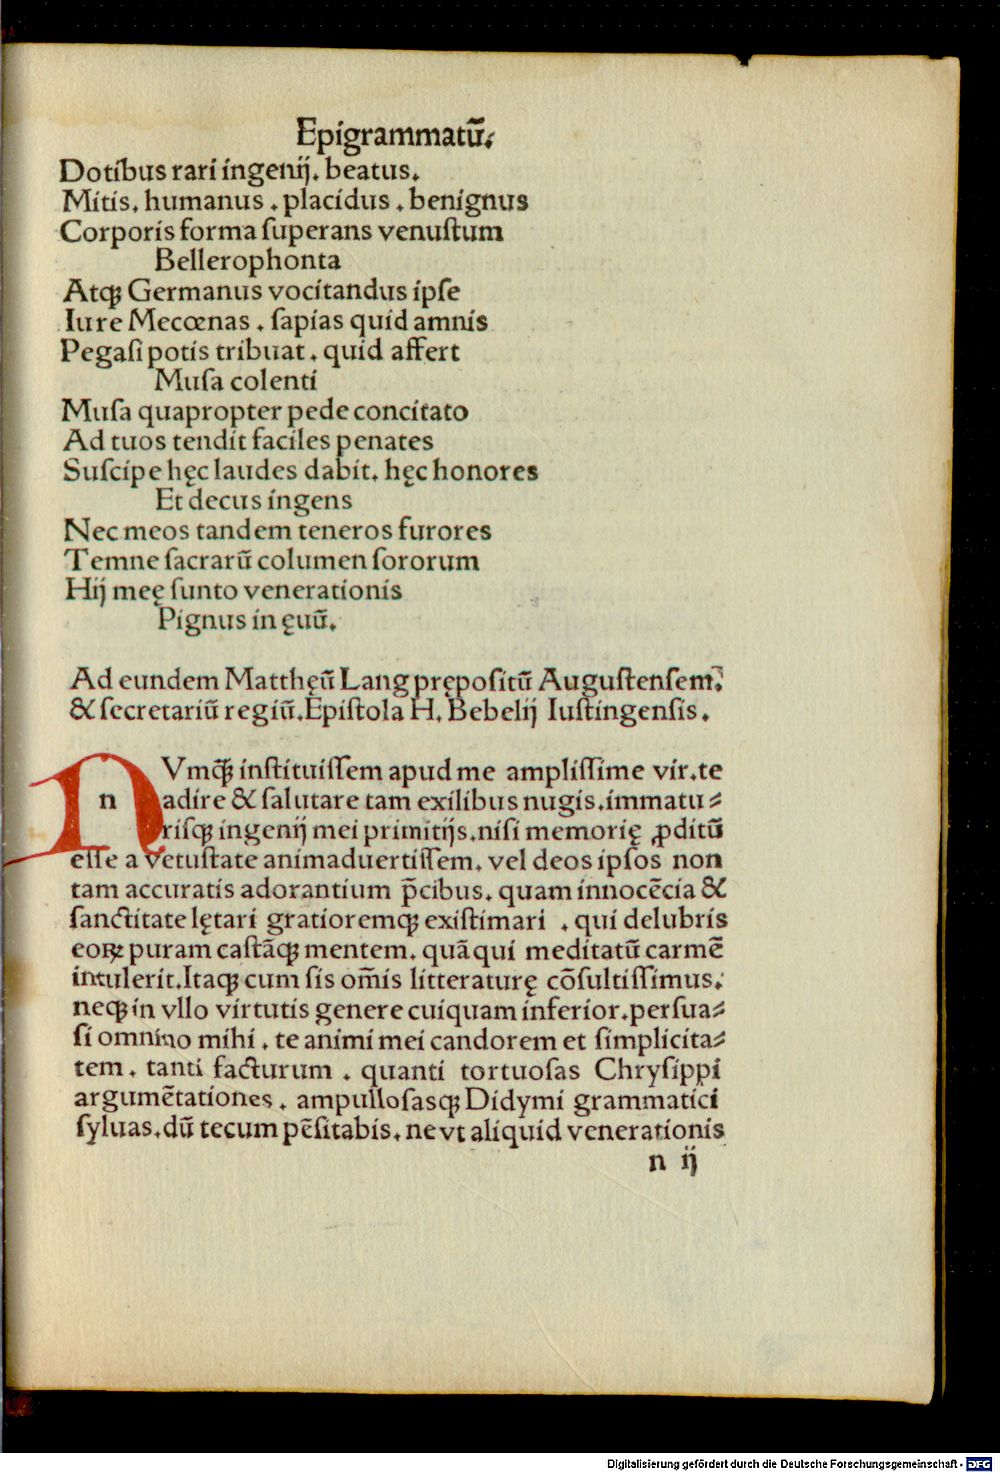 Epigrammatū.
Dotibus rari ingenij. beatus.
Mitis. humanus . placidus . benignus
Corporis forma ſuperans venuſtum
Bellerophonta
Atqꝫ Germanus vocitandus ipſe
Iure Mecœnas . ſapias quid amnis
Pegaſi potis tribuat . quid affert
Muſa colenti
Muſa quapropter pede concitato
Ad tuos tendit faciles penates
Suſcipe hęc laudes dabit. hęc honores
Et decus ingens
Nec meos tandem teneros furores
Temne ſacrarū columen ſororum
Hij meę ſunto venerationis
Pignus in ęuū.
Ad eundem Matthęū Lang prępoſitū Auguſtenſem.
& ſecretariū regiū. Epiſtola H. Bebelij Iuſtingenſis.
NVmq̄ꝫ inſtituiſſem apud me ampliſſime vir. te
n adire & ſalutare tam exilibus nugis. immatu⸗
riſqꝫ ingenij mei primitijs. niſi memorię ꝓditū
eſſe a vetuſtate animaduertiſſem. vel deos ipſos non
tam accuratis adorantium p̄cibus. quam innocēcia &
ſanctitate lętari gratioremqꝫ exiſtimari . qui delubris
eoꝝ puram caſtāqꝫ mentem. quā qui meditatū carmē
intulerit. Itaqꝫ cum ſis om̄is litteraturę cōſultiſſimus.
neqꝫ in vllo virtutis genere cuiquam inferior. perſua⸗
ſi omnino mihi . te animi mei candorem et ſimplicita⸗
tem . tanti facturum . quanti tortuoſas Chryſippi
argumētationes . ampulloſasqꝫ Didymi grammatici
ſyluas. dū tecum pēſitabis. ne vt aliquid venerationis
n ij
Digitalisierung gefördert durch die Deutsche Forschungsgemeinschaft - DFG